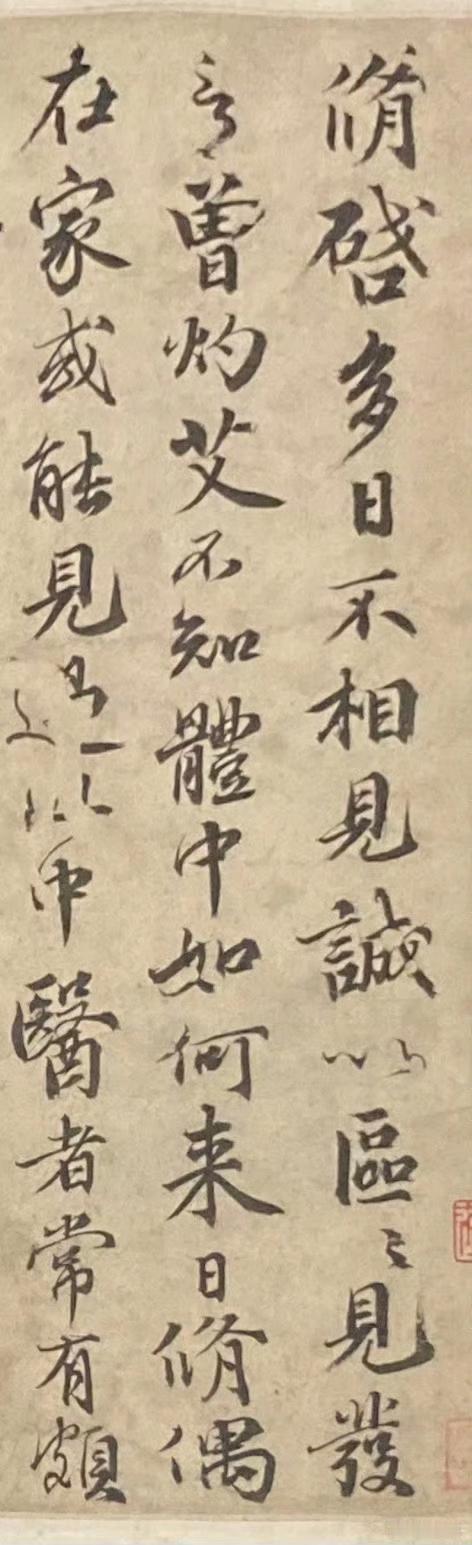 脩啓多日不相見誠以區〻見發
言曾灼艾不知體中如何来日脩偶
在家或能見中醫者常有頗